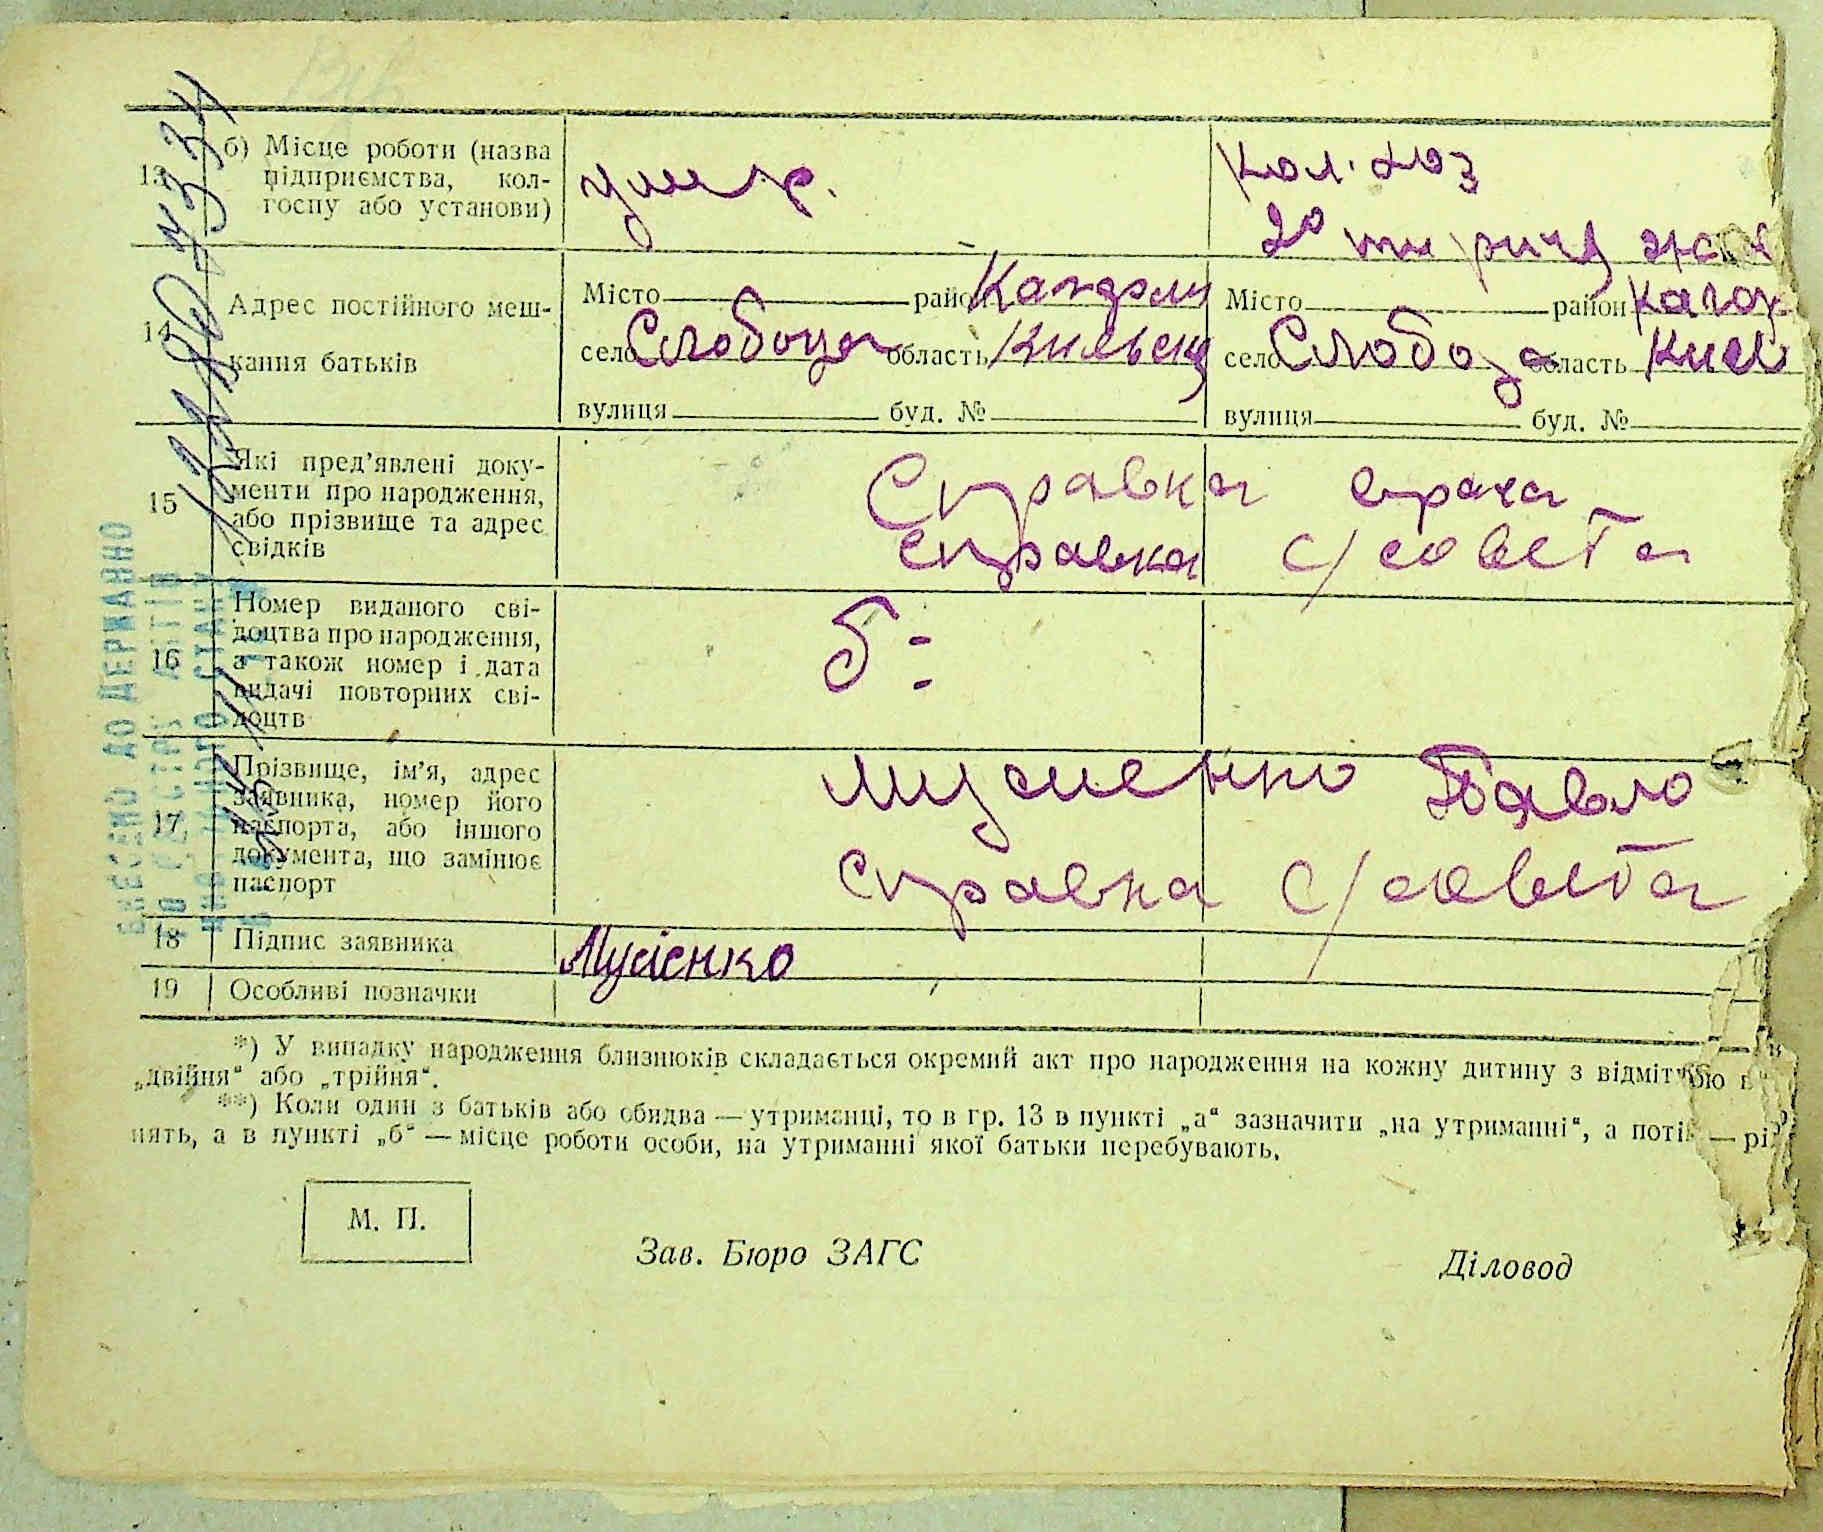 13 б) Місце роботи (назва
підприємства, кол-
госпу або установи)
кол.хоз
14 Адрес постійного меш-
кання батьків
Місто район
село Слобода область
вулиця буд. №
Місто район
село Слобода область Киев
вулиця буд. №
15 Які пред’явлені доку-
менти про народження,
або прізвище та адрес
свідків
Справка врача
справка с/совета
16 Номер виданого сві-
доцтва про народження,
а також номер і дата
видачі повторних сві-
доцтв
17 Прізвище, ім’я, адрес
заявника, номер його
паспорта, або іншого
документа, що замінює
паспорт
Мусиенко Павло
Справка с/совета
18 Підпис заявника Мусієнко
19 Особливі позначки
*) У випадку народження близнюків складається окремий акт про народження на кожну дитину з відміткою в
„двійня“ або „трійня“.
**) Коли один з батьків або обидва — утриманці, то в гр. 13 в пункті „а“ зазначити „на утриманні“, а потім — рі
нять, а в пункті „б“ — місце роботи особи, на утриманні якої батьки перебувають.
М. П.
Зав. Бюро ЗАГС Діловод
ВНЕСЕНО ДО ДЕРЖАВНО